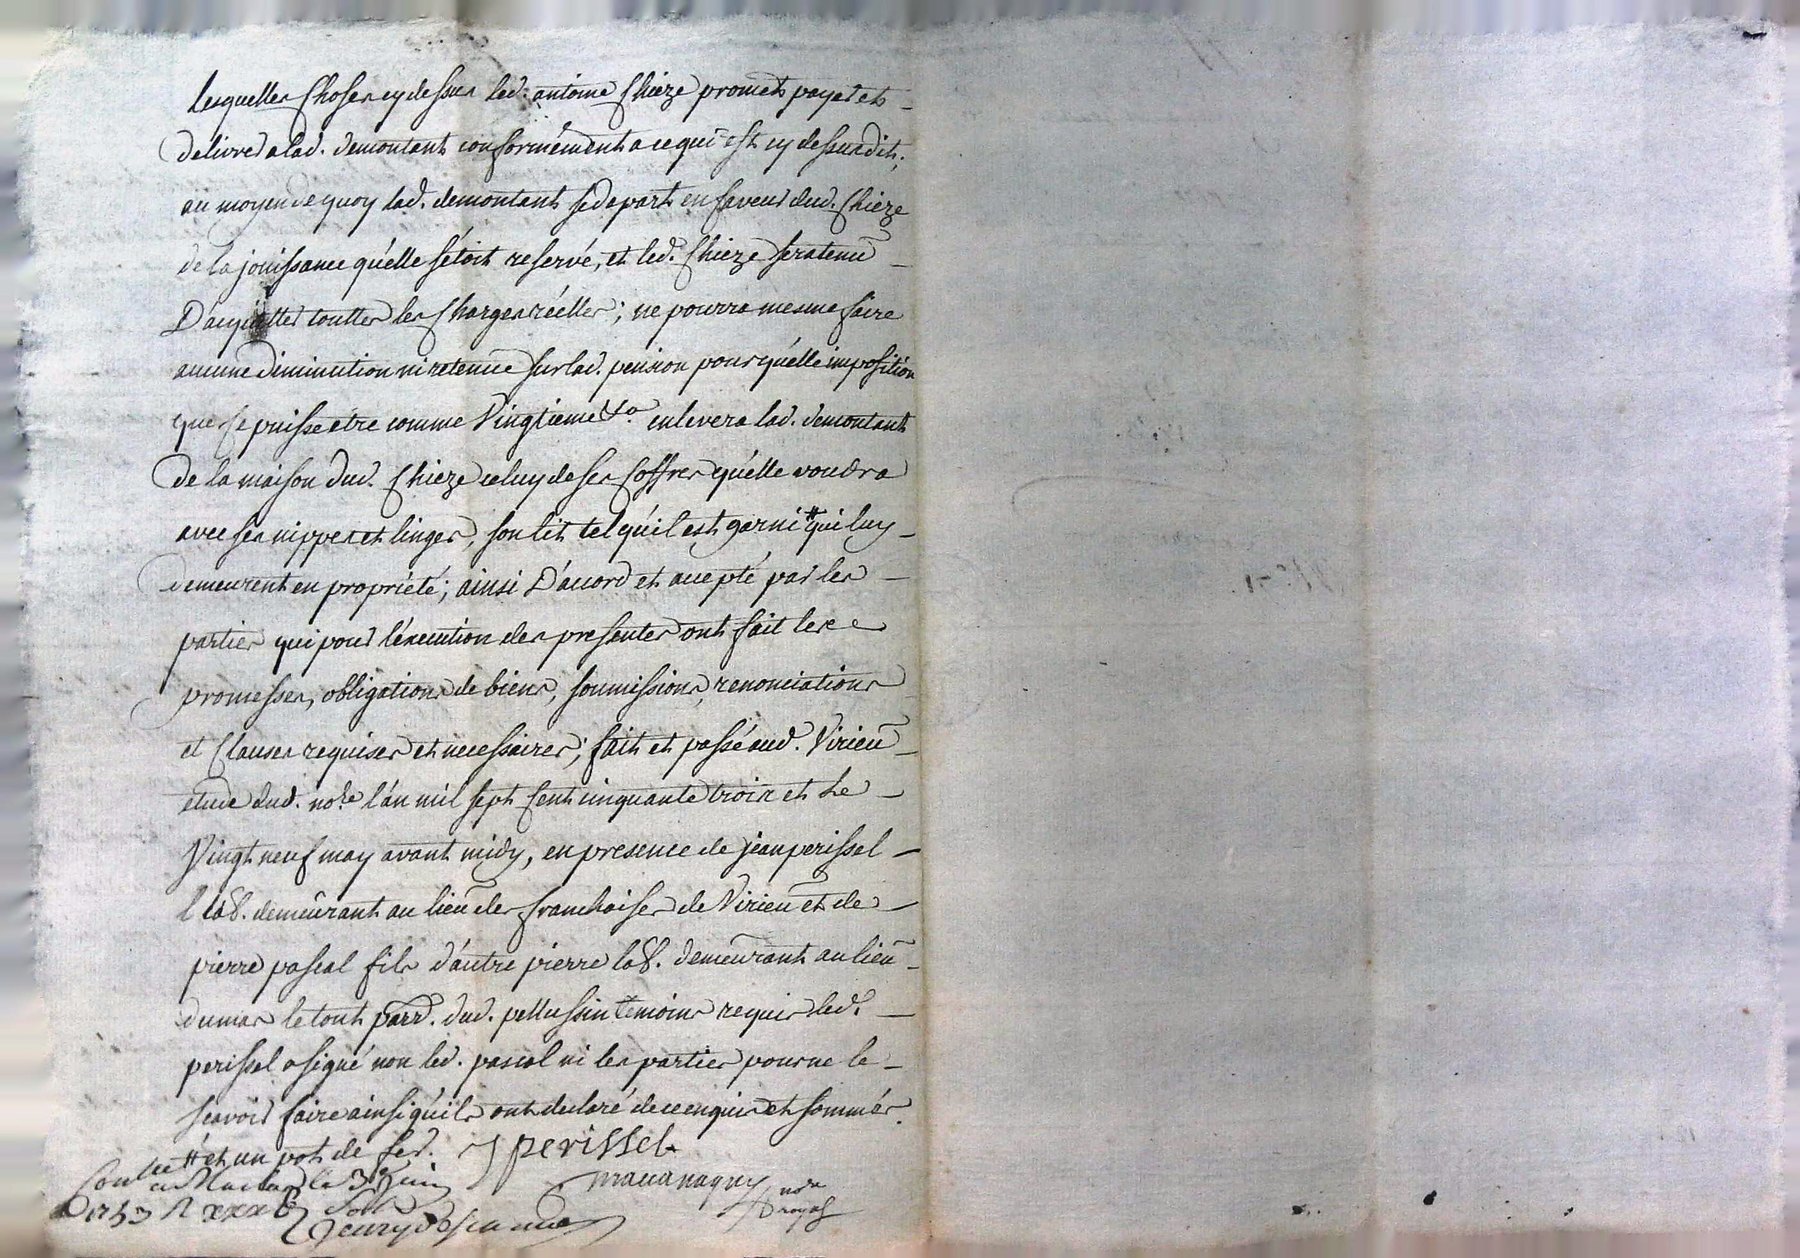 lesquelles Choses cy dessus led. antoine Chieze promet payer et
delivrer a lad. demontant conformément a ce qui est cy dessus dit,
au moyen de quoy lad. demontant se depart en faveur dud. Chieze
de la jouissance qu'elle s'étoit reservé, et led. Chieze sera tenu
D'acquitter touttes les Charges réelles; ne pourra mesme faire
aucune diminution ni retenue sur lad. pension pour quelle imposition
que se puisse etre comme Vingtieme &a. enlevera lad. demontant
de la maison dud. Chieze celuy de ses Coffres qu'elle voudra
avec ses nippes et linges, son lit tel qu'il est garni # qui luy
demeurent en proprieté; ainsi D'accord et accepté par les
parties qui pour l'execution des presentes ont fait les
promesses, obligations de biens, soumissions, renonciations
et Clauses requises et necessaires; fait et passé aud. Virieu
étude dud. nore. l'an mil sept Cent cinquante trois et le
Vingt neuf may avant midy, en presence de jean perissel
lab. demeurant au lieu des franchises de Virieu et de
pierre pascal fils d'autre pierre lab. demeurant au lieu
dumas le tout parr. dud. pellussin temoins requis led.
perissel a signé non led. pascal ni les parties pour ne le
scavoir faire ainsi qu'ils ont declaré de ce enquis et sommés.
# et un pot de fer. J perissel
mavanagny nore royal
le 3 juin
1753 R